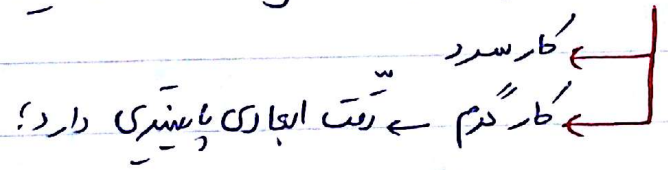 کار سرد
کار گرم ← دقت ابعادی پایینتری دارد؛